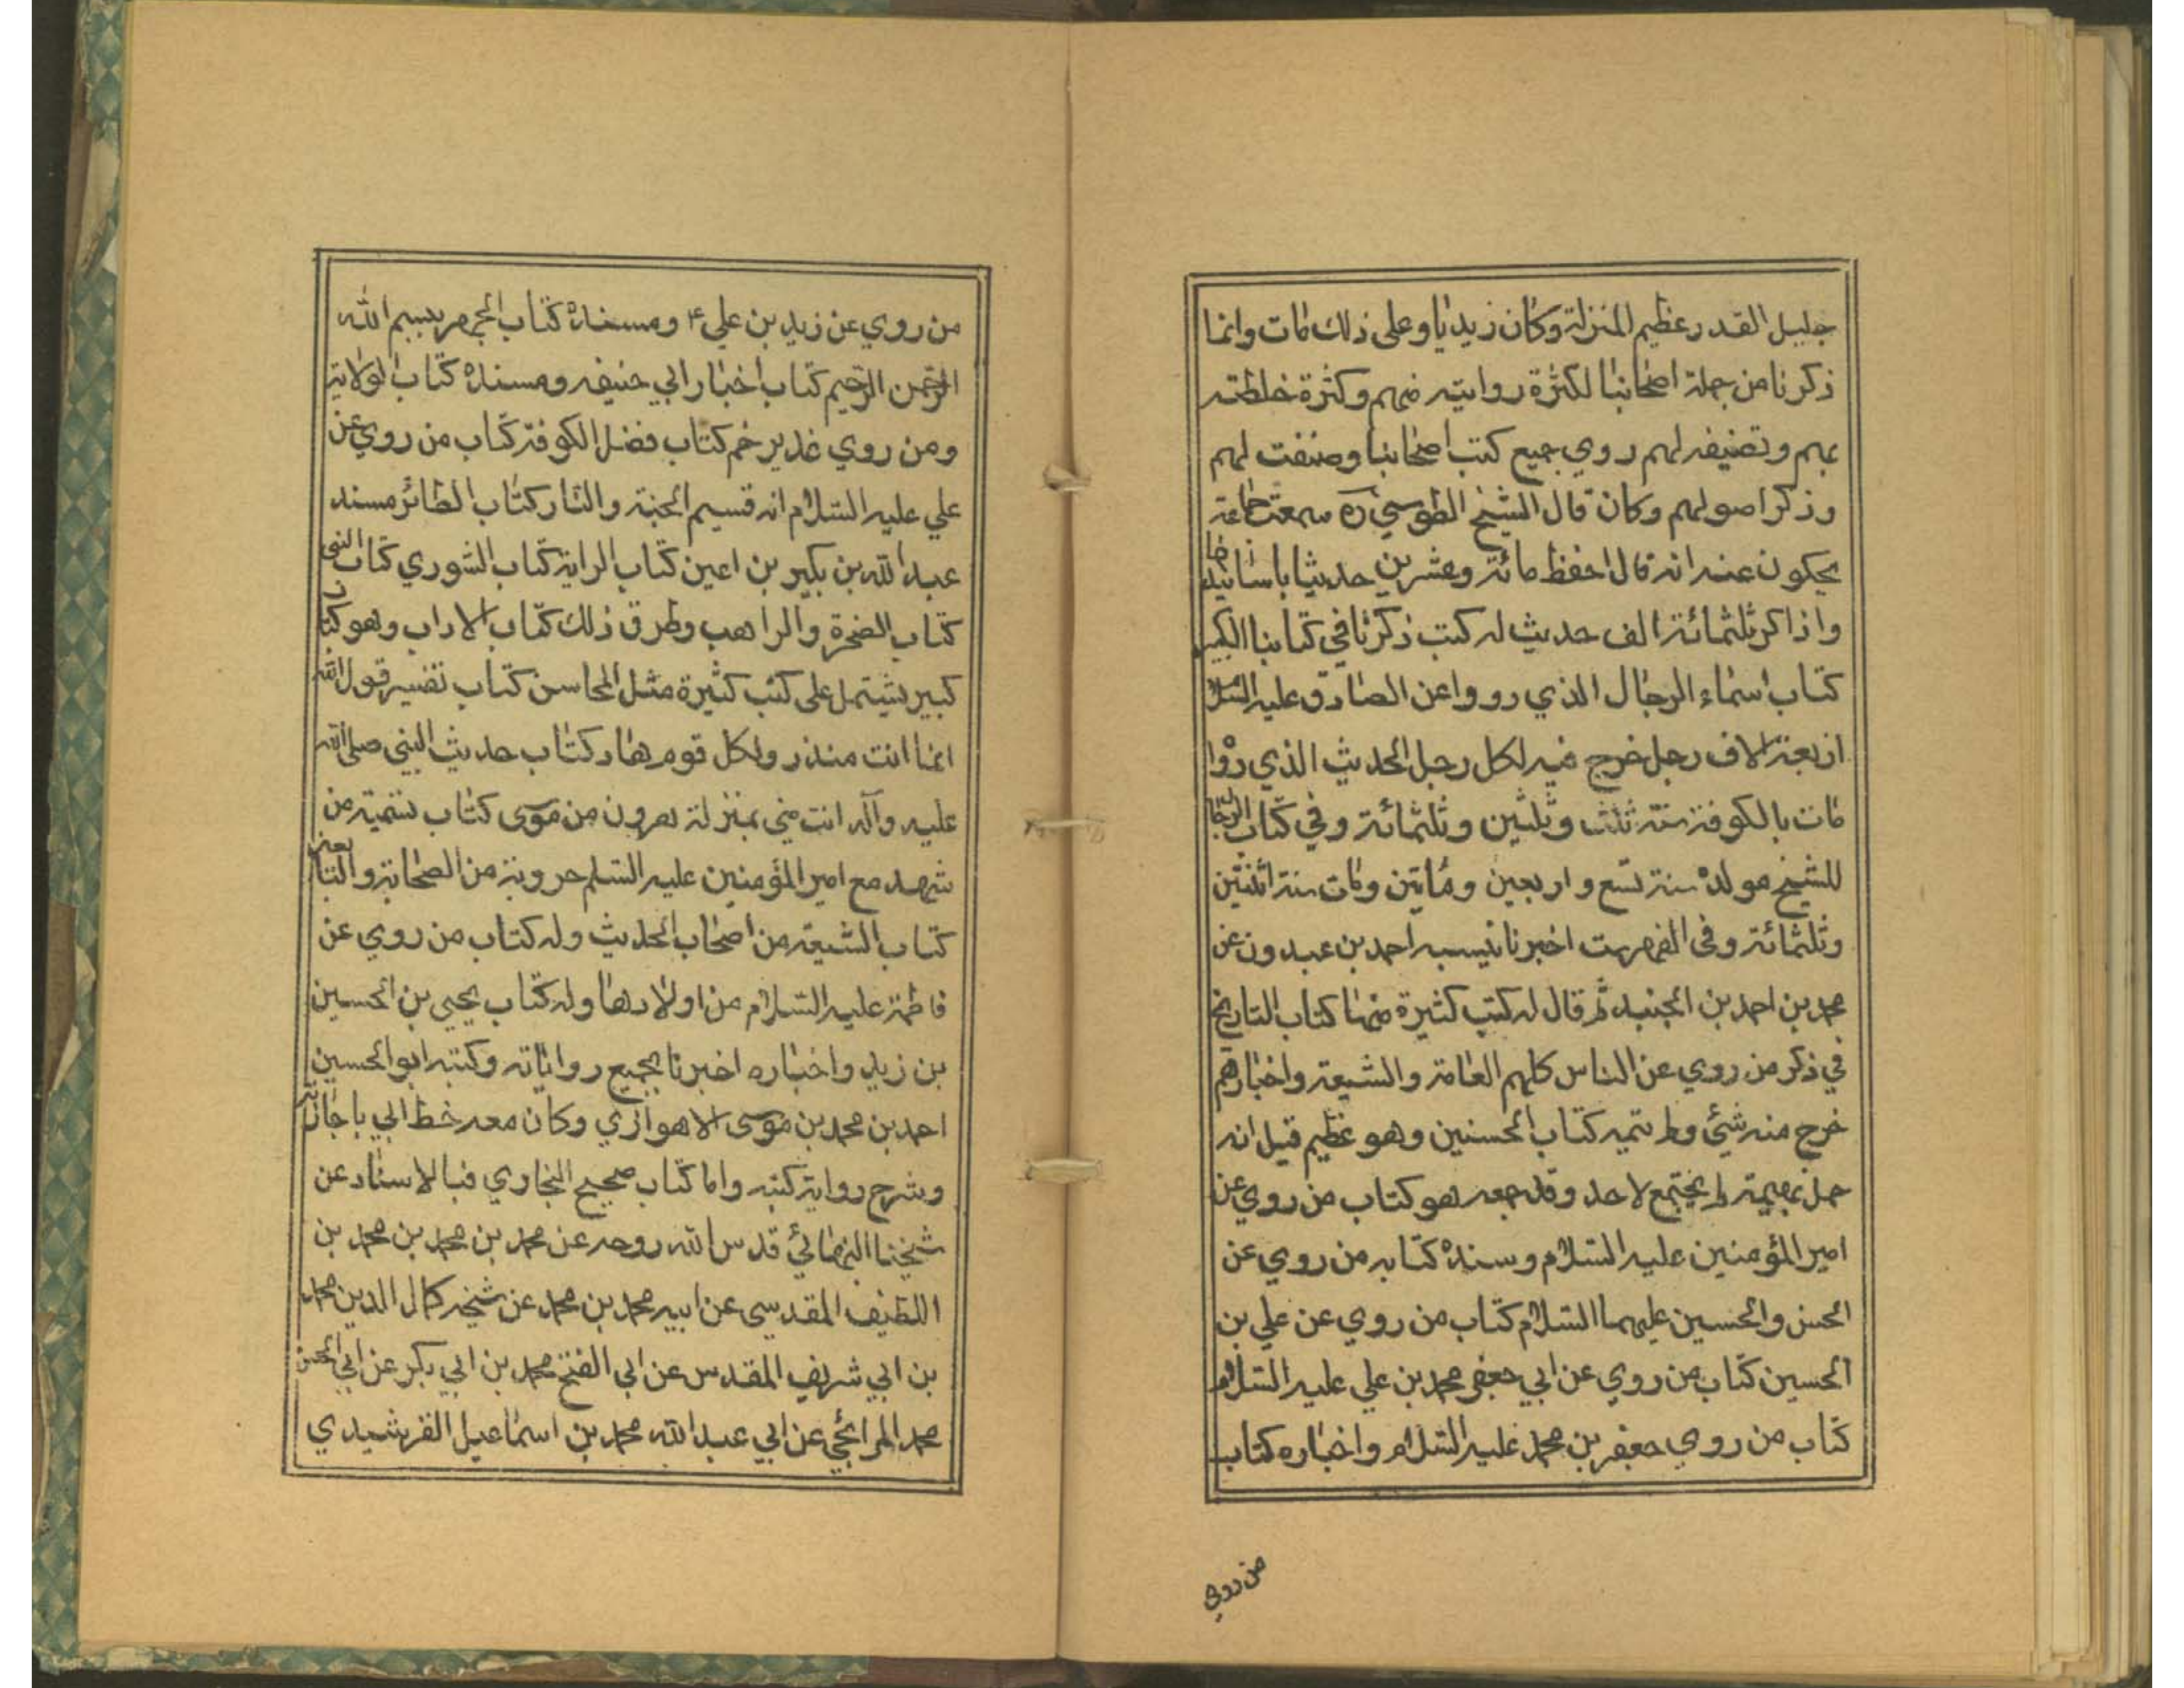 جليل القدر عظيم المنزلة وكان زيديا وعلى ذلك مات وانما
ذكرنا من جملة اصحابنا لكثرة روايته منهم وكثرة خلطته
بهم وتصنيفه لهم روي جميع كتب اصحابنا وصنفت لهم
وذكر اصولهم وكان قال الشيخ الطوسي ره سمعت جماعة
يحكون عنه انه قال احفظ مائة وعشرين حديثا باسانيدها
واذاكر ثلثمائة الف حديث له كتب ذكرنا في كتابنا الكبير
كتاب اسماء الرجال الذي رووا عن الصادق عليه السلام
اربعة الاف رجل خرج فيه لكل رجل الحديث الذي رواه
مات بالكوفة سنة ثلث وثلثين وثلثمائة وفي كتاب الرجال
للشيخ مولده سنة تسع واربعين ومأتين ومات سنة اثنتين
وثلثمائة وفي الفهرست اخبرنا بنسبه احمد بن عبدون عن
محمد بن احمد بن الجنيد ثم قال له كتب كثيرة منها كتاب التاريخ
في ذكر من روي عن الناس كلهم العامة والشيعة واخبارهم
خرج منه شئ ولم يتمه كتاب الحسنين وهو عظيم قيل انه
حمل بهيمة لم يجتمع لاحد وقد جمعه هو كتاب من روي عن
امير المؤمنين عليه السلام وسنده كتابه من روي عن
الحسن والحسين عليهما السلام كتاب من روي عن علي بن
الحسين كتاب من روي عن ابي جعفر محمد بن علي عليه السلام
كتاب من روي جعفر بن محمد عليه السلام واخباره كتاب
من روي
من روي عن زيد بن علي ع ومسنده كتاب الجهر ببسم الله
الرحمن الرحيم كتاب اخبار ابي حنيفه ومسنده كتاب الولاية
ومن روي غدير خم كتاب فضل الكوفة كتاب من روي عن
علي عليه السلام انه قسيم الجنة والنار كتاب الطائر مسند
عبد الله بن بكير بن اعين كتاب الراية كتاب الشوري كتاب النبي
كتاب الصخرة والراهب وطرق ذلك كتاب الاداب وهو كتاب
كبير يشتمل على كتب كثيرة مثل المحاسن كتاب تفسير قول الله
انما انت منذر ولكل قوم هاد كتاب حديث النبي صلى الله
عليه وآله انت مني بمنزلة هرون من موسى كتاب تسمية من
شهد مع امير المؤمنين عليه السلم حروبة من الصحابة والتابعين
كتاب الشيعة من اصحاب الحديث وله كتاب من روي عن
فاطمة عليه السلام من اولادها وله كتاب يحيى بن الحسين
بن زيد واخباره اخبرنا بجميع رواياته وكتبه ابو الحسين
احمد بن محمد بن موسى الاهوازي وكان معه خط ابي باجازته
وشرح رواية كتبه واما كتاب صحيح البخاري فبالاسناد عن
شيخنا البهائي قدس الله روحه عن محمد بن محمد بن محمد بن
اللطيف المقدسي عن ابيه محمد بن محمد عن شيخه كمال الدين محمد
بن ابي شريف المقدس عن ابي الفتح محمد بن ابي بكر عن ابي الحسن
محمد المراغي عن ابي عبد الله محمد بن اسماعيل القرشيدي